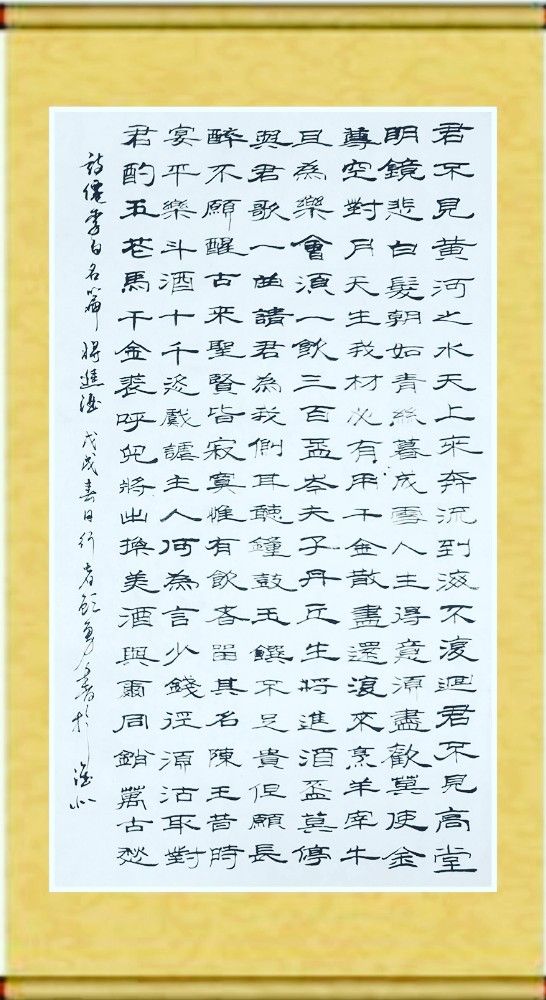 君不見黃河之水天上來奔流到海不復迴君不見高堂
明鏡悲白髮朝如青絲暮成雪人生得意須盡歡莫使金
尊空對月天生我材必有用千金散盡還復來烹羊宰牛
且為樂會須一飲三百盃岑夫子丹丘生將進酒盃莫停
與君歌一曲請君為我側耳聽鐘鼓玉饌不足貴但願長
醉不願醒古來聖賢皆寂寞惟有飲者留其名陳王昔時
宴平樂斗酒十千恣戲謔主人何為言少錢徑須沽取對
君酌五花馬千金裘呼兒將出換美酒與爾同銷萬古愁
詩僊李白名篇將進酒戊戌春日行者勇書於淮北